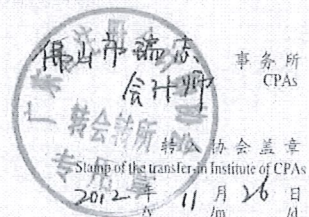 佛山市瑞志 事务所
会计师 CPAs
转会转所
专用章
转入协会盖章
Stamp of the transfer-in Institute of CPAs
2012 年 11 月 26 日
/y /m /d